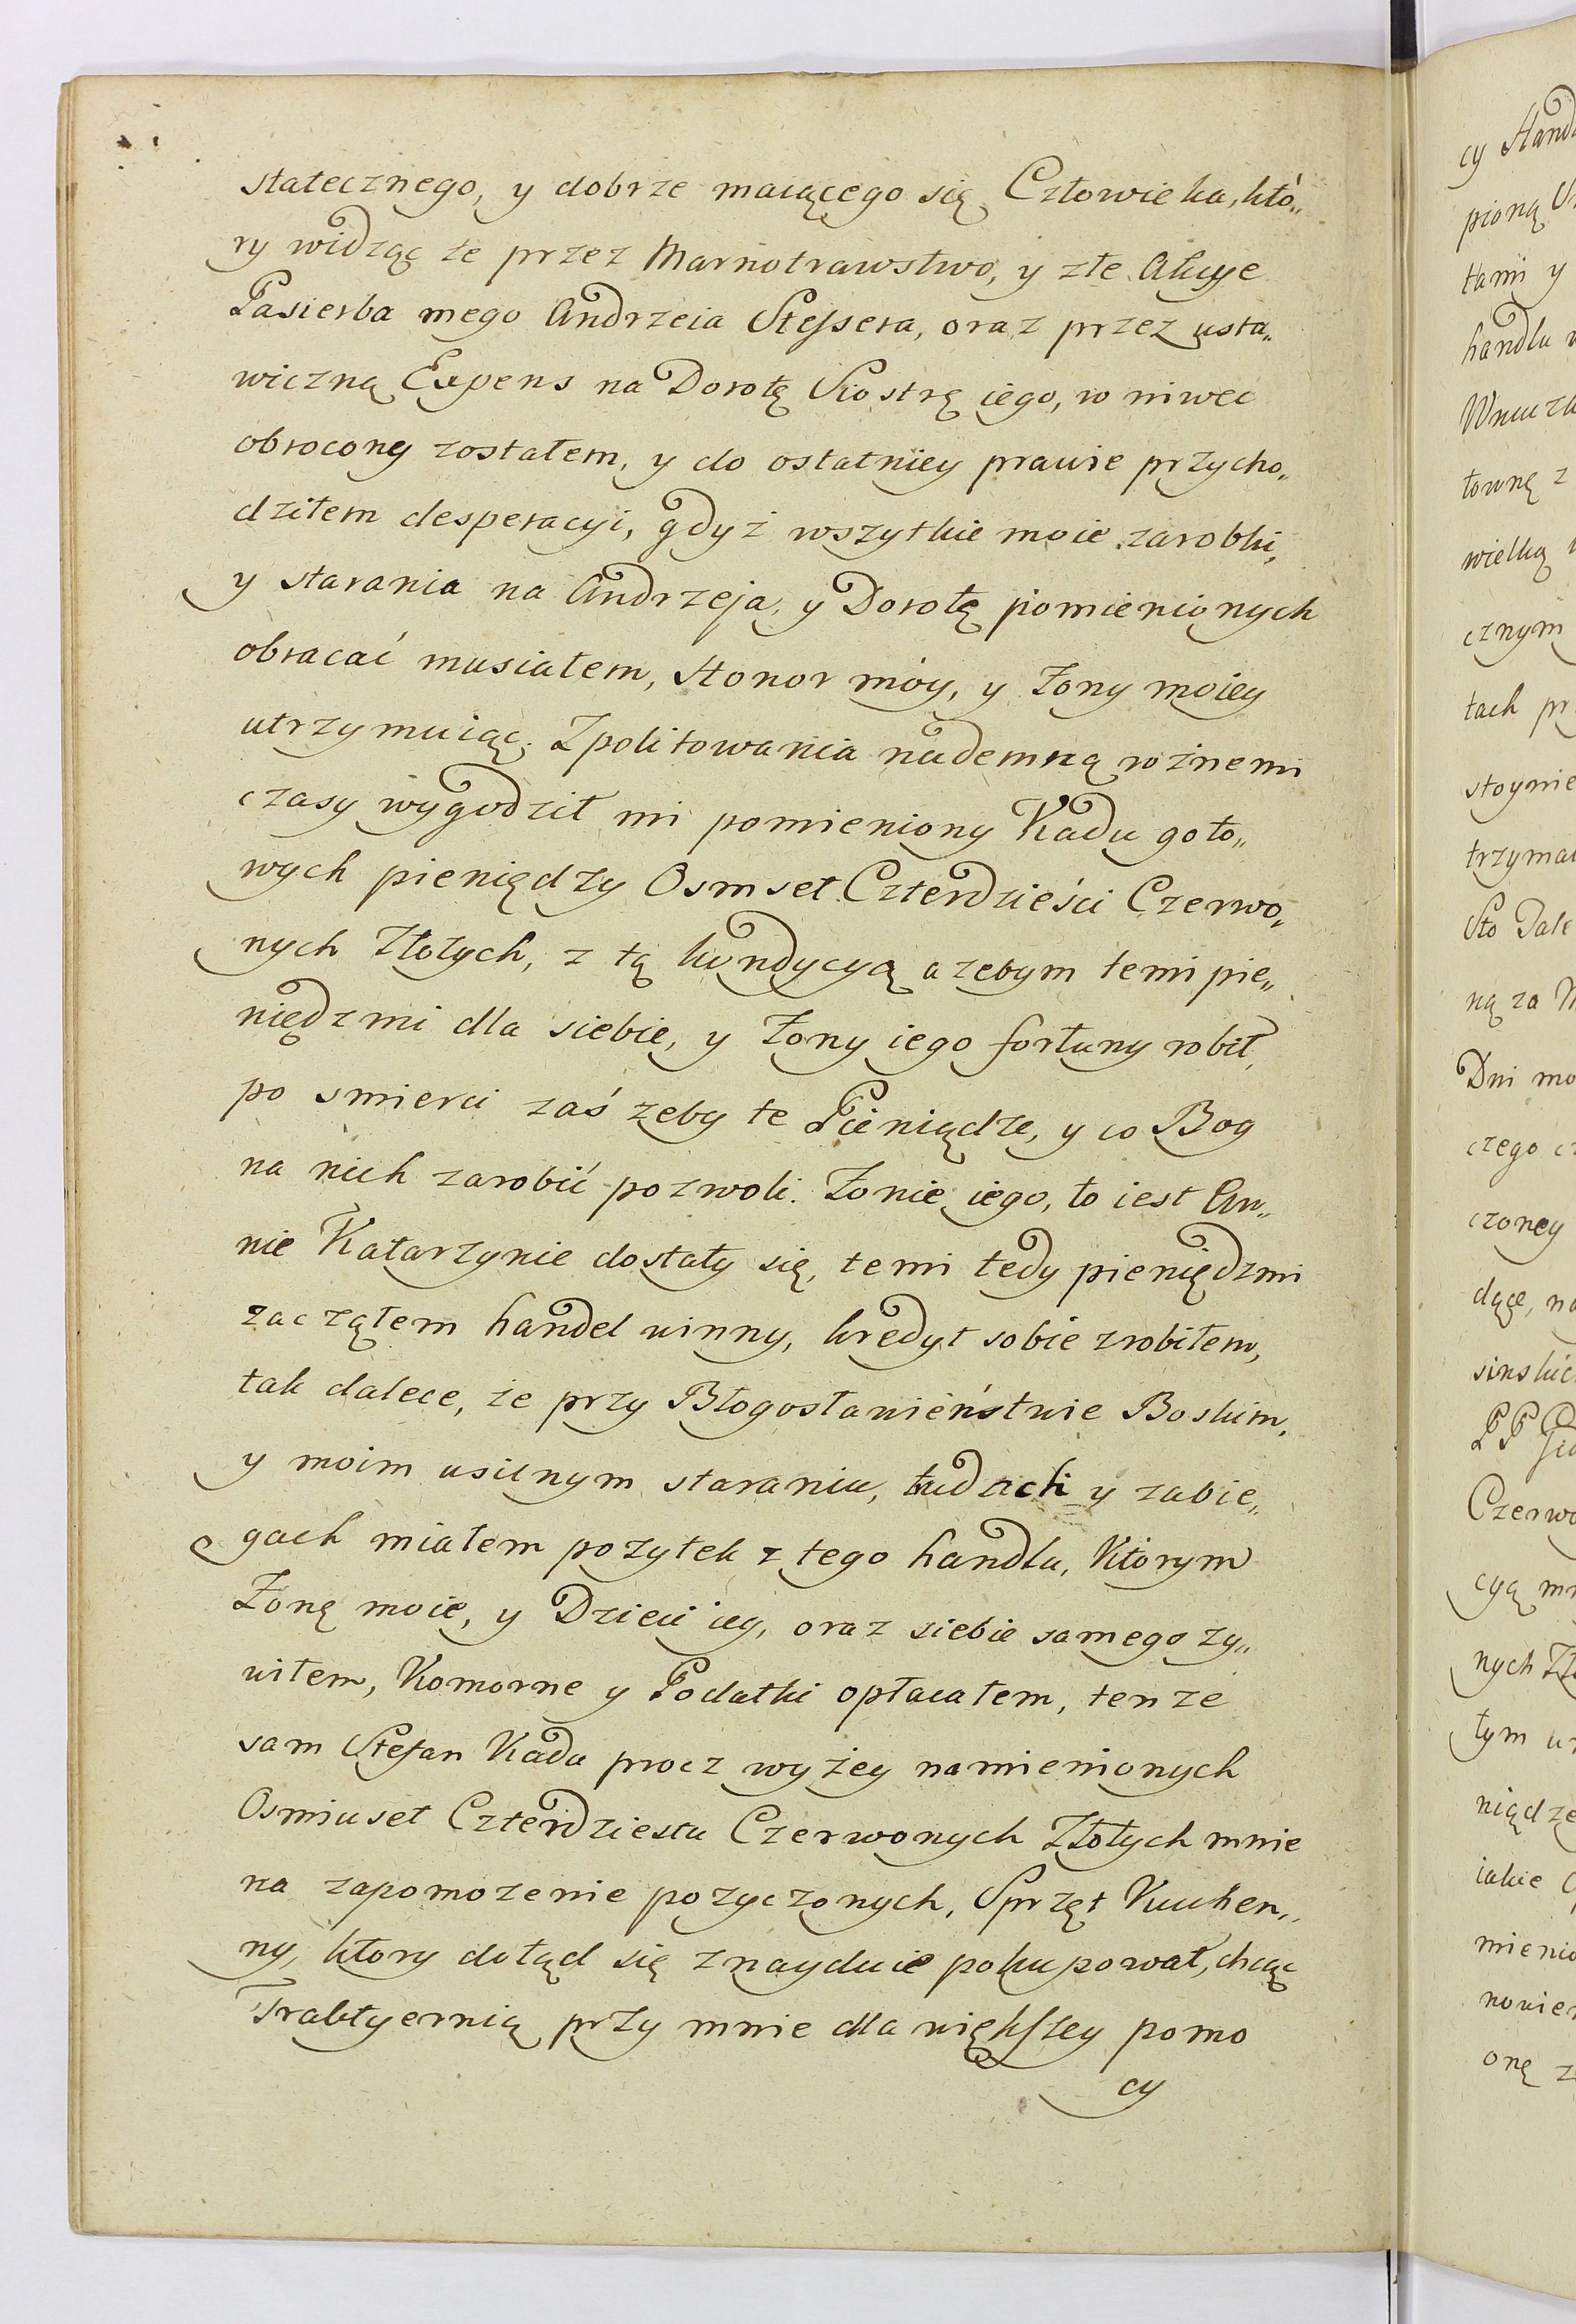 statecznego, y dobrze maiącego się Człowieka, któ„
ry widząc że przez Marnotrawstwo, y złe Akcye
Pasierba mego Andrzeia Steysera, oraz przez usta„
wiczną Expens na Dorotę Siostrę iego, w niwec
obrocony zostałem, y do ostatniey prawie przycho„
dziłem desperacyi, gdyż wszytkie moie zarobki,
y starania na Andrzeja, y Dorotę pomienionych
obracać musiałem, Honor móy, y Żony moiey
utrzymuiąc. Z politowania nademną rożnemi
czasy wygodził mi pomieniony Kadu goto„
wych pieniędzy Osmset Czterdzieści Czerwo„
nych Złotych, z tą kondycyą ażebym temi pie„
niędzmi dla siebie, y Żony iego fortuny robił,
po smierci zaś żeby te Pieniądze, y co Bog
na nich zarobić pozwoli. Żonie iego, to iest An„
nie Katarzynie dostały się, temi tedy pieniędzmi
zacząłem handel winny, kredyt sobie zrobiłem,
tak dalece, że przy Błogosławieństwie Boskim,
y moim usilnym staraniu, trudach y zabie„
gach miałem pożytek z tego handlu, Ktorym
Żonę moię, y Dzieci iey, oraz siebie samego ży„
wiłem, Komorne y Podatki opłacałem, tenże
sam Stefan Kadu procz wyżey namienionych
Osmiuset Czterdziestu Czerwonych Złotych mnie
na zapomożenie pożyczonych, Sprzęt Kuchen„
ny, ktory dotąd się znayduie pokupował, chcąc
Traktyernią przy mnie dla większey pomo
cy
cy Hand
pioną
tami y
handlu
Wnuczk
townę z
wielką
cznym
tach pr
stoynie
trzyma
Sto Tale
ną za
Dni mo
czego
czoney
dące, na
sinskic
PP
Czerwo
cyą mn
nych Zł
tym
niądze
iakie
mienio
nowie
onę z